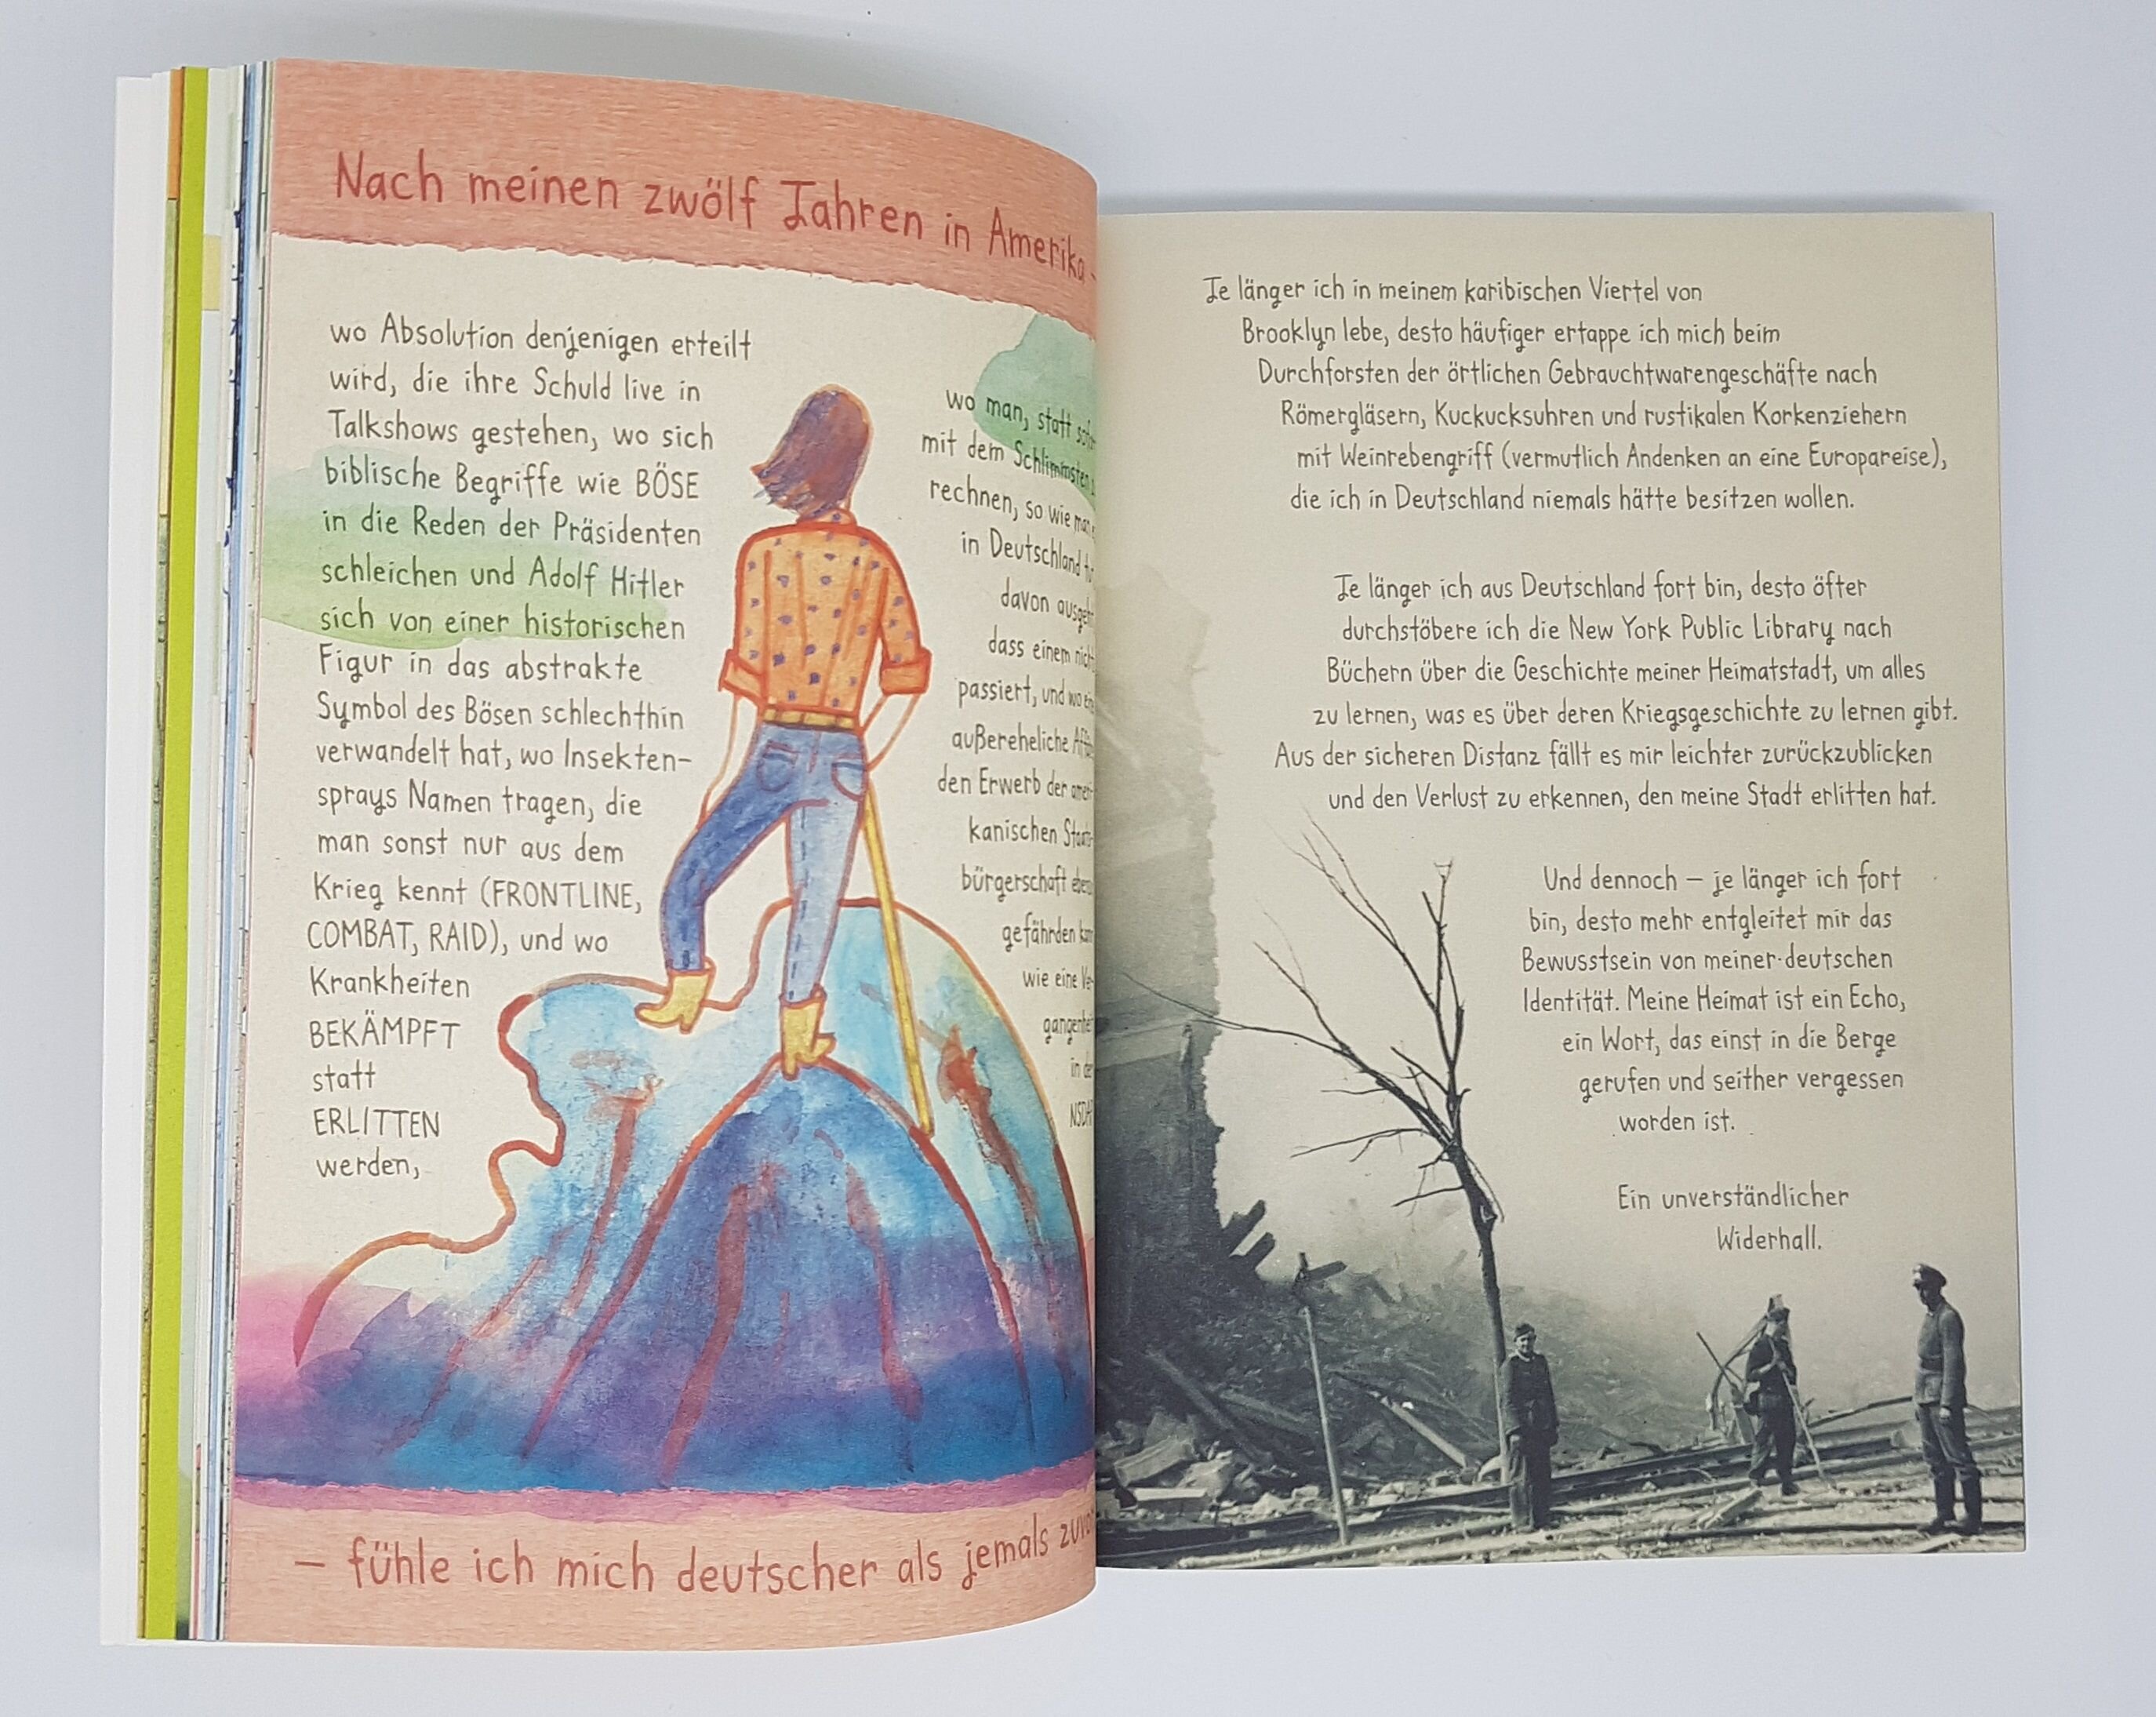 Nach meinen zwölf Jahren in Amerika –
wo Absolution denjenigen erteilt
wird, die ihre Schuld live in
Talkshows gestehen, wo sich
biblische Begriffe wie BÖSE
in die Reden der Präsidenten
schleichen und Adolf Hitler
sich von einer historischen
Figur in das abstrakte
Symbol des Bösen schlechthin
verwandelt hat, wo Insekten-
sprays Namen tragen, die
man sonst nur aus dem
Krieg kennt (FRONTLINE,
COMBAT, RAID), und wo
Krankheiten
BEKÄMPFT
statt
ERLITTEN
werden,
wo man, statt
mit dem Schlimmsten
rechnen, so wie man
in Deutschland
davon
dass einem
passiert, und wo
außereheliche
den Erwerb der ameri-
kanischen
bürgerschaft
gefährden
wie eine Ver-
in der
– fühle ich mich deutscher als jemals
Je länger ich in meinem karibischen Viertel von
Brooklyn lebe, desto häufiger ertappe ich mich beim
Durchforsten der örtlichen Gebrauchtwarengeschäfte nach
Römergläsern, Kuckucksuhren und rustikalen Korkenziehern
mit Weinrebengriff (vermutlich Andenken an eine Europareise),
die ich in Deutschland niemals hätte besitzen wollen.
Je länger ich aus Deutschland fort bin, desto öfter
durchstöbere ich die New York Public Library nach
Büchern über die Geschichte meiner Heimatstadt, um alles
zu lernen, was es über deren Kriegsgeschichte zu lernen gibt.
Aus der sicheren Distanz fällt es mir leichter zurückzublicken
und den Verlust zu erkennen, den meine Stadt erlitten hat.
Und dennoch – je länger ich fort
bin, desto mehr entgleitet mir das
Bewusstsein von meiner deutschen
Identität. Meine Heimat ist ein Echo,
ein Wort, das einst in die Berge
gerufen und seither vergessen
worden ist.
Ein unverständlicher
Widerhall.